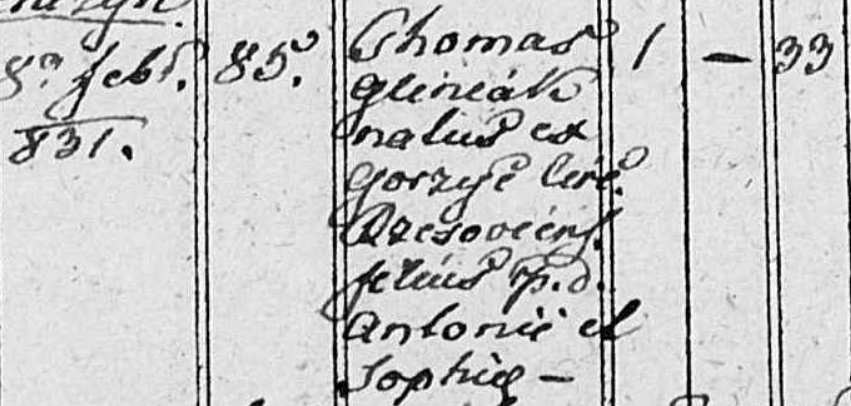 8ª febr.
831.
85.
Thomas
Gliniák
natus ex
Gorzyc Circ.
Rzesoviens.
filius p.d.
Antonii et
Sophiae —
1
—
33